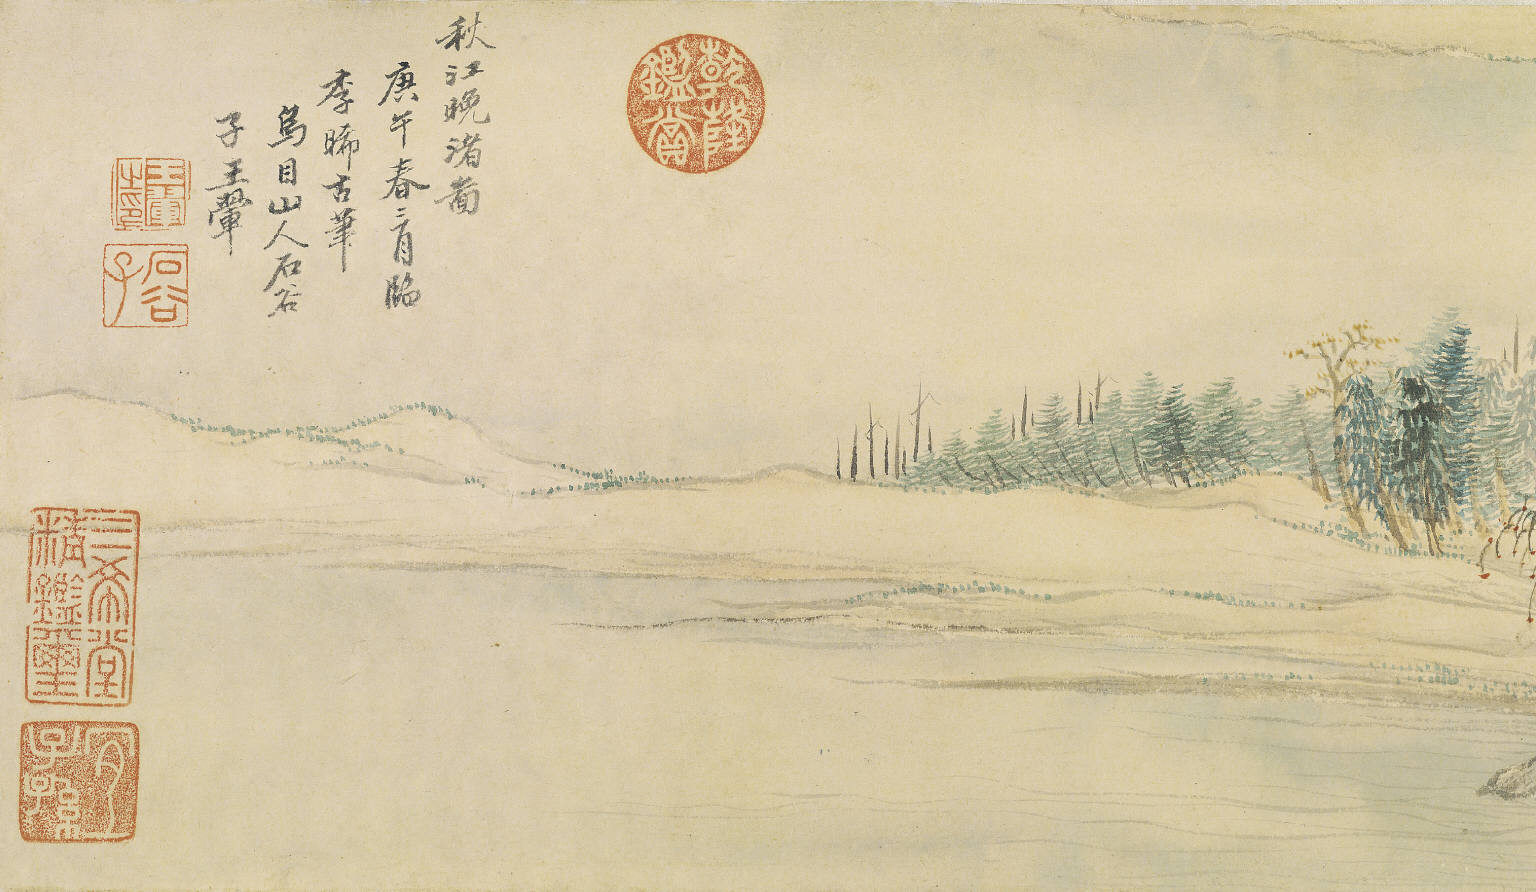 秋江晚渚啚
庚午春二月臨
李晞古筆
烏目山人石谷
子王翬
乾隆鑑賞
王翬之印
石谷子
三希堂精鑑璽
宜子孫